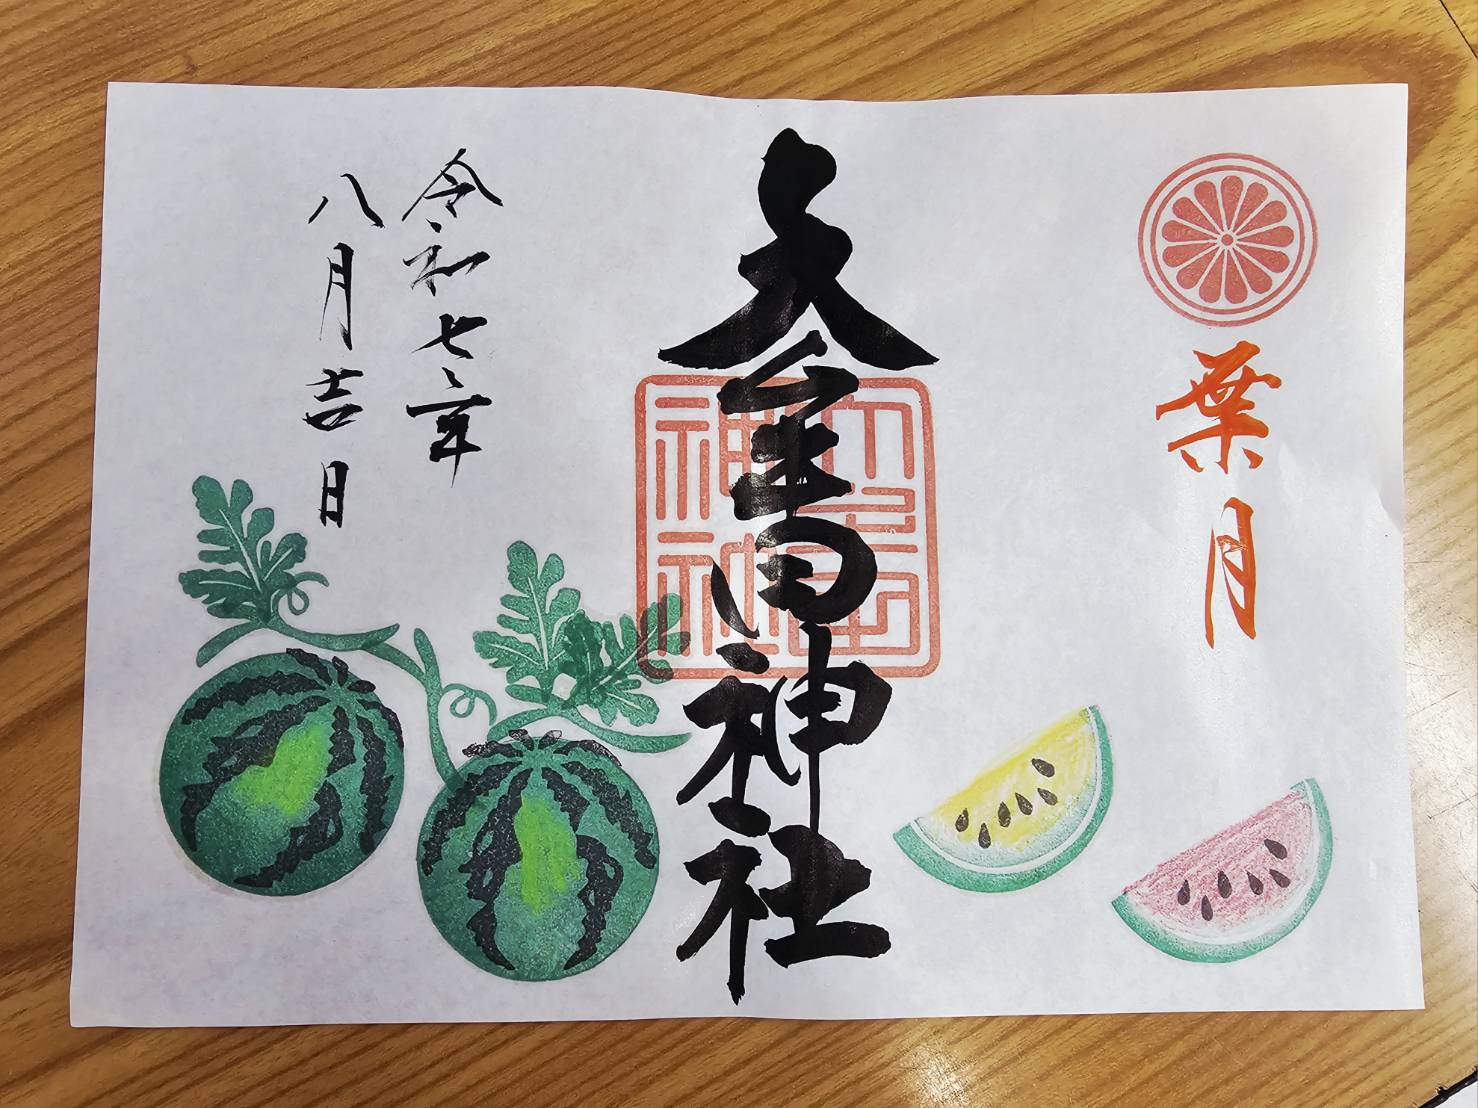 葉月
大
神社
神社
令和七年
八月吉日